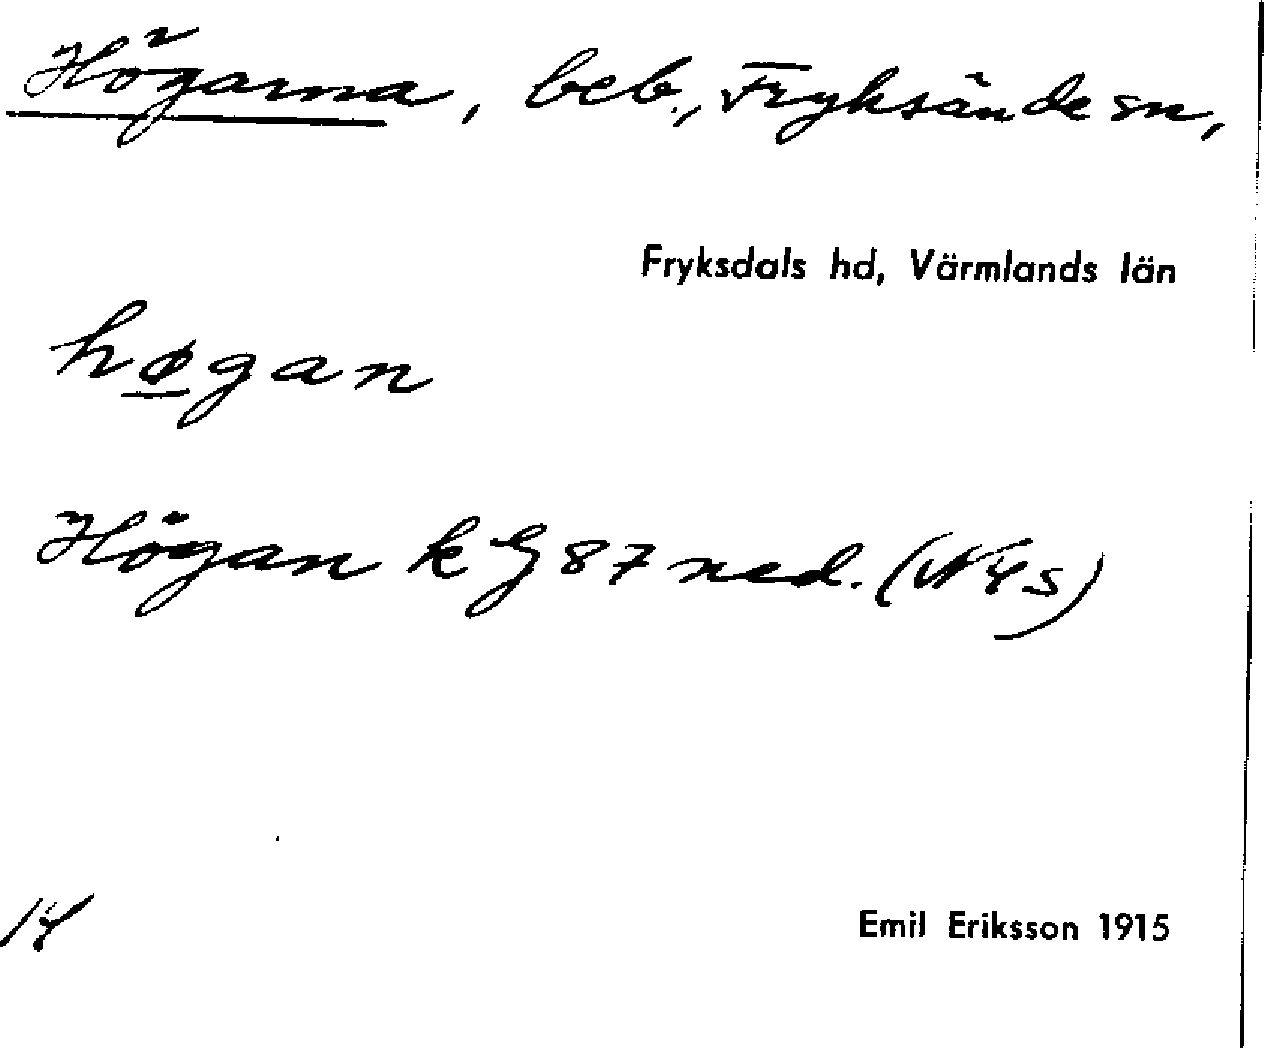 Högarna, beb., Fryksände sn,
Fryksdals hd, Värmlands län
høgan
Högan k G 87 ned. (N4s)
14
Emil Eriksson 1915